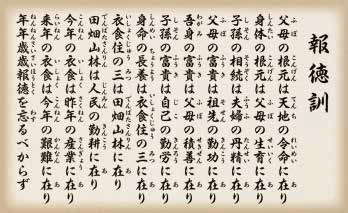 報徳訓
父母の根元は天地の令命に在り
身体の根元は父母の生育に在り
子孫の相続は夫婦の丹精に在り
父母の富貴は祖先の勤功に在り
吾身の富貴は父母の積善に在り
子孫の富貴は自己の勤労に在り
身命の長養は衣食住の三に在り
衣食住の三は田畑山林に在り
田畑山林は人民の勤耕に在り
今年の衣食は昨年の産業に在り
来年の衣食は今年の艱難に在り
年年歳歳報徳を忘るべからず